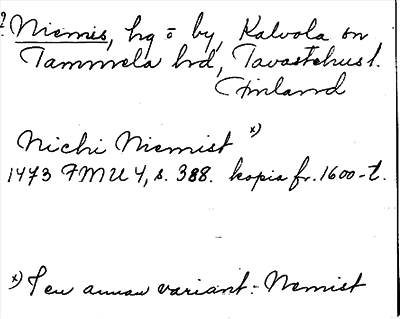 ? Niemis, hg o by, Kalvola sn
Tammela hd, Tavastehus l.
Finland
Nichi Niemist x)
1473 FMU 4, s. 388. kopia fr. 1600-t.
x) I en annan variant: Nemist